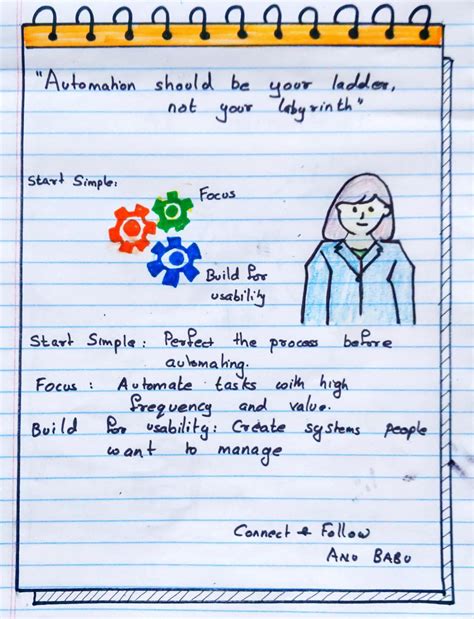 "Automation should be your ladder,
not your labyrinth"
Start Simple:
Focus
Build for
usability
Start Simple: Perfect the process before
automating.
Focus: Automate tasks with high
frequency and value.
Build for usability: Create systems people
want to manage
Connect & Follow
ANU BABU